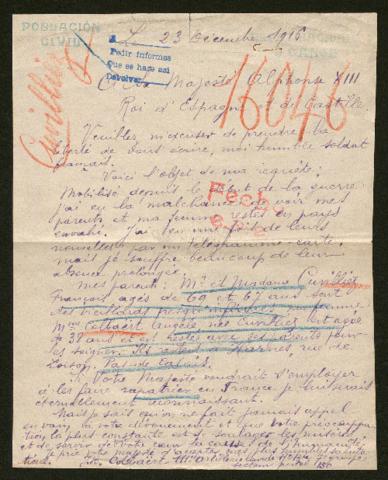 POBLACIÓN
CIVIL
Le 23 Décembre 1916
Pedir informes
Que se haga así
Devolver
A Sa Majesté Alphonse XIII
Roi d'Espagne et de Castille
Cuvillier
16046
Veuillez m'excuser de prendre la
liberté de vous écrire, moi humble soldat
français.
Voici l'objet de ma requête:
Mobilisé depuis le début de la guerre
j'ai eu la malchance de voir mes
parents et ma femme restés en pays
envahi. J'ai eu de leurs
nouvelles par un télégramme-carte,
mais je souffre beaucoup de leur
absence prolongée.
Fecho
Mes parents: Mr et Madame Cuvillier
Français, agés de 69 et 67 ans sont
des vieillards
Mme Colbaert Angèle née Cuvillier est agée
de 38 ans et est restée avec ses parents pour
les soigner. Ils estent à Harnes, rue de
Loison, Pas de Calais.
Si Votre Majesté voudrait s'employer
à les faire rapatrier en France je lui serais
éternellement reconnaissant.
Mais je sais qu'on ne fait jamais appel
en vain à votre dévouement et que votre préoccupa-
tion la plus constante est de soulager les misères
et de servir de votre cœur la cause de l'humanité.
Je prie votre majesté d'accepter mes plus humbles saluta-
tions.
Colbaert
secteur postal 186